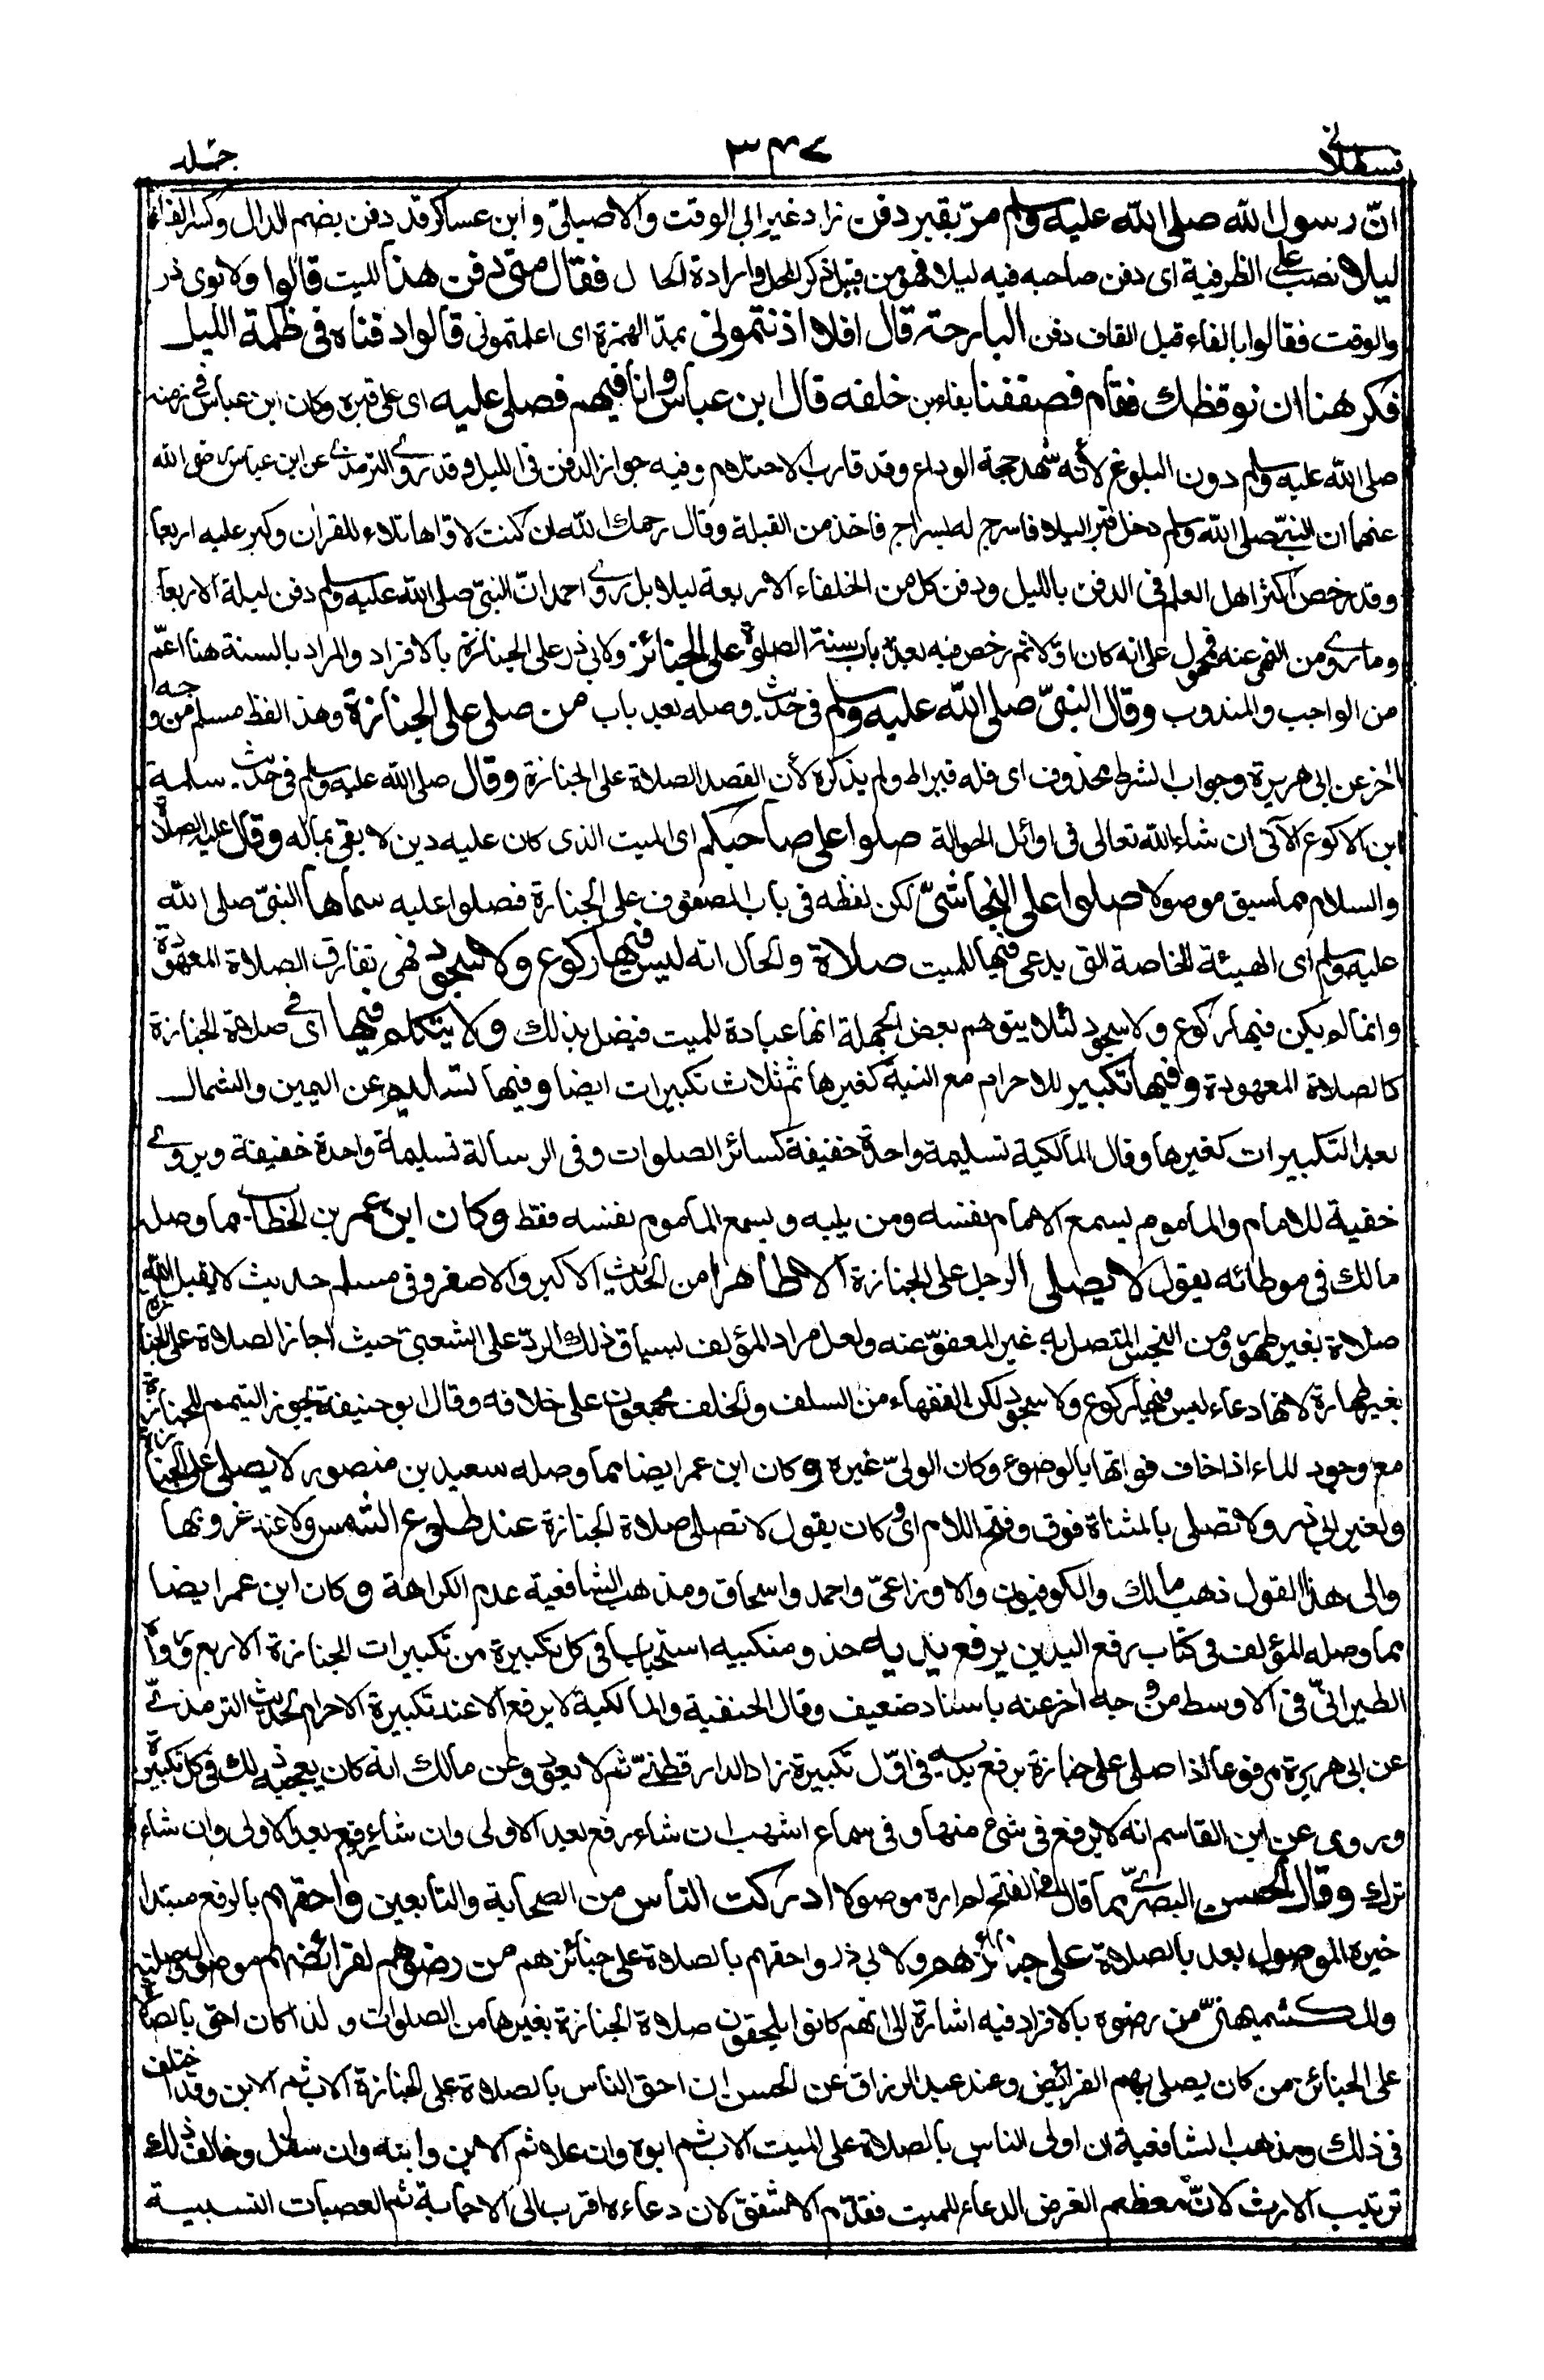 قسطلانى ٣٤٧ جلد
انّ رسول الله صلى الله عليه وسلم مرّ بقبر دفن زاد غير ابي الوقت والاصيليّ وابن عساكر قد دفن بضم الدال وكسر الفاء
ليلا نصب على الظرفية اى دفن صاحبه فيه ليلا فهو من قبيل ذكر المحل وارادة الحال فقال متى دفن هذا الميت قالوا ولابوى ذر
والوقت فقالوا بالفاء قبل القاف دفن البارحة قال افلا اذنتمونى بمدّ الهمزة اى اعلمتمونى قالوا دفناه فى ظلمة الليل
فكرهنا ان نوقظك فقام فصففنا بفاءين خلفه قال ابن عباس وانا فيهم فصلى عليه اى على قبره وكان ابن عباس فى زمنه
صلى الله عليه وسلم دون البلوغ لأنه شهد حجة الوداع وقد قارب الاحتلام وفيه جواز الدفن فى الليل وقد روى الترمذى عن ابن عباس رضى الله
عنهما ان النبىّ صلى الله عليه وسلم دخل قبرا ليلا فاسرج له سراج فاخذ من القبلة وقال رحمك الله ان كنت لاوّاها تلاء للقران وكبر عليه اربعا
وقد رخص اكثر اهل العلم فى الدفن بالليل ودفن كل من الخلفاء الاربعة ليلا بل روى احمد انّ النبىّ صلى الله عليه وسلم دفن ليلة الاربعا
وما روى من النهى عنه فمحمول على انه كان اوّلا ثم رخص فيه بعده باب سنة الصلوة على الجنائز ولابى ذر على الجنازة بالافراد والمراد بالسنة هنا اعمّ
من الواجب والمندوب وقال النبىّ صلى الله عليه وسلم فى حديث وصله بعد باب من صلى على الجنازة وهذا لفظ مسلم من وجه
اخر عن ابى هريرة وجواب الشرط محذوف اى فله قيراط ولم يذكره لأن القصد الصلاة على الجنازة وقال صلى الله عليه وسلم فى حديث سلمة
ابن الاكوع الآتى ان شاء الله تعالى فى اوائل الحوالة صلوا على صاحبكم اى الميت الذى كان عليه دين لا يفى بماله وقال عليه الصلاة
والسلام مما سبق موصولا صلوا على النجاشىّ لكن لفظه فى باب الصفوف على الجنازة فصلوا عليه سماها النبىّ صلى الله
عليه وسلم اى الهيئة الخاصة التى يدعى فيها للميت صلاة والحال انه ليس فيها ركوع ولا سجود فهى تفارق الصلاة المعهودة
وانما لم يكن فيها ركوع ولا سجود لئلا يتوهم بعض الجهلة انها عبادة للميت فيضل بذلك ولا يتكلم فيها اى فى صلاة الجنازة
كالصلاة المعهودة وفيها تكبير للاحرام مع النية كغيرها ثم ثلاث تكبيرات ايضا وفيها تسليم عن اليمين والشمال
بعد التكبيرات كغيرها وقال المالكية تسليمة واحدة خفيفة كسائر الصلوات وفى الرسالة تسليمة واحدة خفيفة ويروى
خفية للامام والماموم يسمع الامام نفسه ومن يليه ويسمع الماموم نفسه فقط وكان ابن عمر بن الخطاب مما وصله
مالك فى موطائه يقول لا يصلى الرجل على الجنازة الا طاهرا من الحدث الاكبر والاصغر وفى مسلم حديث لا يقبل الله
صلاة بغير طهور ومن النجس المتصل به غير المعفوّ عنه ولعل مراد المؤلف بسياق ذلك الردّ على الشعبى حيث اجاز الصلاة على الجنازة
بغير طهارة لانها دعاء ليس فيها ركوع ولا سجود لكن الفقهاء من السلف والخلف مجمعون على خلافه وقال ابو حنيفة يجوز التيمم للجنازة
مع وجود الماء اذا خاف فواتها بالوضوء وكان الولىّ غيره وكان ابن عمر ايضا مما وصله سعيد بن منصور لا يصلى على الجنازة
ولغير ابى ذر ولا تصلى بالمثناة فوق وفتح اللام اى وكان يقول لا تصلى صلاة الجنازة عند طلوع الشمس ولا عند غروبها
والى هذا القول ذهب مالك والكوفيون والاوزاعىّ واحمد واسحاق ومذهب الشافعية عدم الكراهة وكان ابن عمر ايضا
مما وصله المؤلف فى كتاب رفع اليدين يرفع يديه حذو منكبيه استحبابا فى كل تكبيرة من تكبيرات الجنازة الاربع ورواه
الطبرانىّ فى الاوسط من وجه اخر عنه باسناد ضعيف وقال الحنفية والمالكية لا يرفع الا عند تكبيرة الاحرام لحديث الترمذىّ
عن ابى هريرة مرفوعا اذا صلى على جنازة يرفع يديه فى اوّل تكبيرة زاد الدارقطنىّ ثم لا يعود وعن مالك انه كان يعجبه ذلك فى كل تكبيرة
وروى عن ابن القاسم انه لا يرفع فى شئ منها وفى سماع اشهب ان شاء رفع بعد الاولى وان شاء رفع بعد الاولى وان شاء
ترك وقال الحسن البصرىّ مما قال فى الفتح لم اره موصولا ادركت الناس من الصحابة والتابعين واحقهم بالرفع مبتدا
خبره الموصول بعد بالصلاة على جنائزهم ولابي ذر واحقهم بالصلاة على جنائزهم من رضوهم لفرائضهم موصول وصلته
وللكشميهنىّ من رضوه بالافراد فيه اشارة الى انهم كانوا يلحقون صلاة الجنازة بغيرها من الصلوات ولذا كان احق بالصلاة
على الجنائز من كان يصلى بهم الفرائض وعند عبد الرزاق عن الحسن ان احق الناس بالصلاة على الجنازة الاب ثم الابن وقد اختلف
فى ذلك ومذهب الشافعية ان اولى الناس بالصلاة على الميت الاب ثم ابوه وان علا ثم الابن وابنه وان سفل وخالف ذلك
ترتيب الارث لانّ معظم الغرض الدعاء للميت فقدّم الاشفق لان دعاءه اقرب الى الاجابة ثم العصبات النسبية